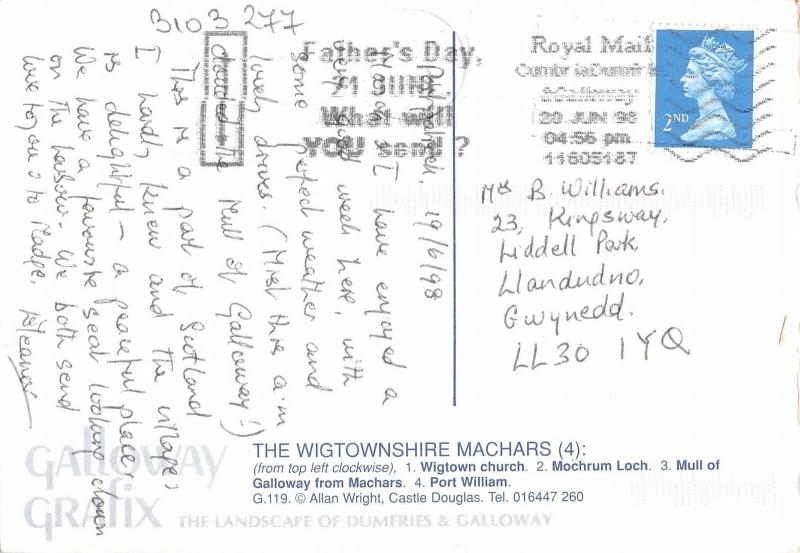 3103 277
Father's Day.
YOU send?
Royal Mail
20 JUN 98
04:56 pm
11605187
2ND
Portpatrick 19/6/98
I have enjoyed a
very good week here, with
some perfect weather and
lovely drives. (Mist this a.m
clouded the Mull of Galloway!)
This is a part of Scotland
I hardly knew and the village
is delightful – a peaceful place.
We have a favourite seat looking down
on the harbour. We both send
love to you & to Madge. Eleanor
Mrs B. Williams.
23, Kingsway,
Liddell Park,
Llandudno,
Gwynedd.
LL30 1YQ
THE WIGTOWNSHIRE MACHARS (4):
(from top left clockwise), 1. Wigtown church. 2. Mochrum Loch. 3. Mull of
Galloway from Machars. 4. Port William.
G.119. © Allan Wright, Castle Douglas. Tel. 016447 260
Galloway
Grafix THE LANDSCAPE OF DUMFRIES & GALLOWAY